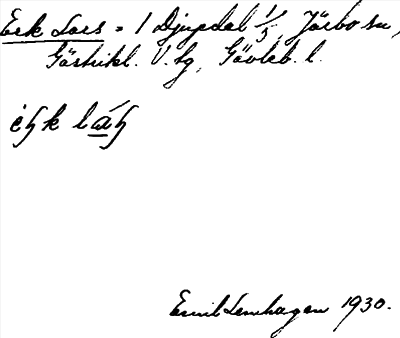 Erk Lars = 1 Djupdal 1/5, Järbo sn,
Gästrikl. V. tg, Gävleb. l.
Emil Lenhagen 1930.